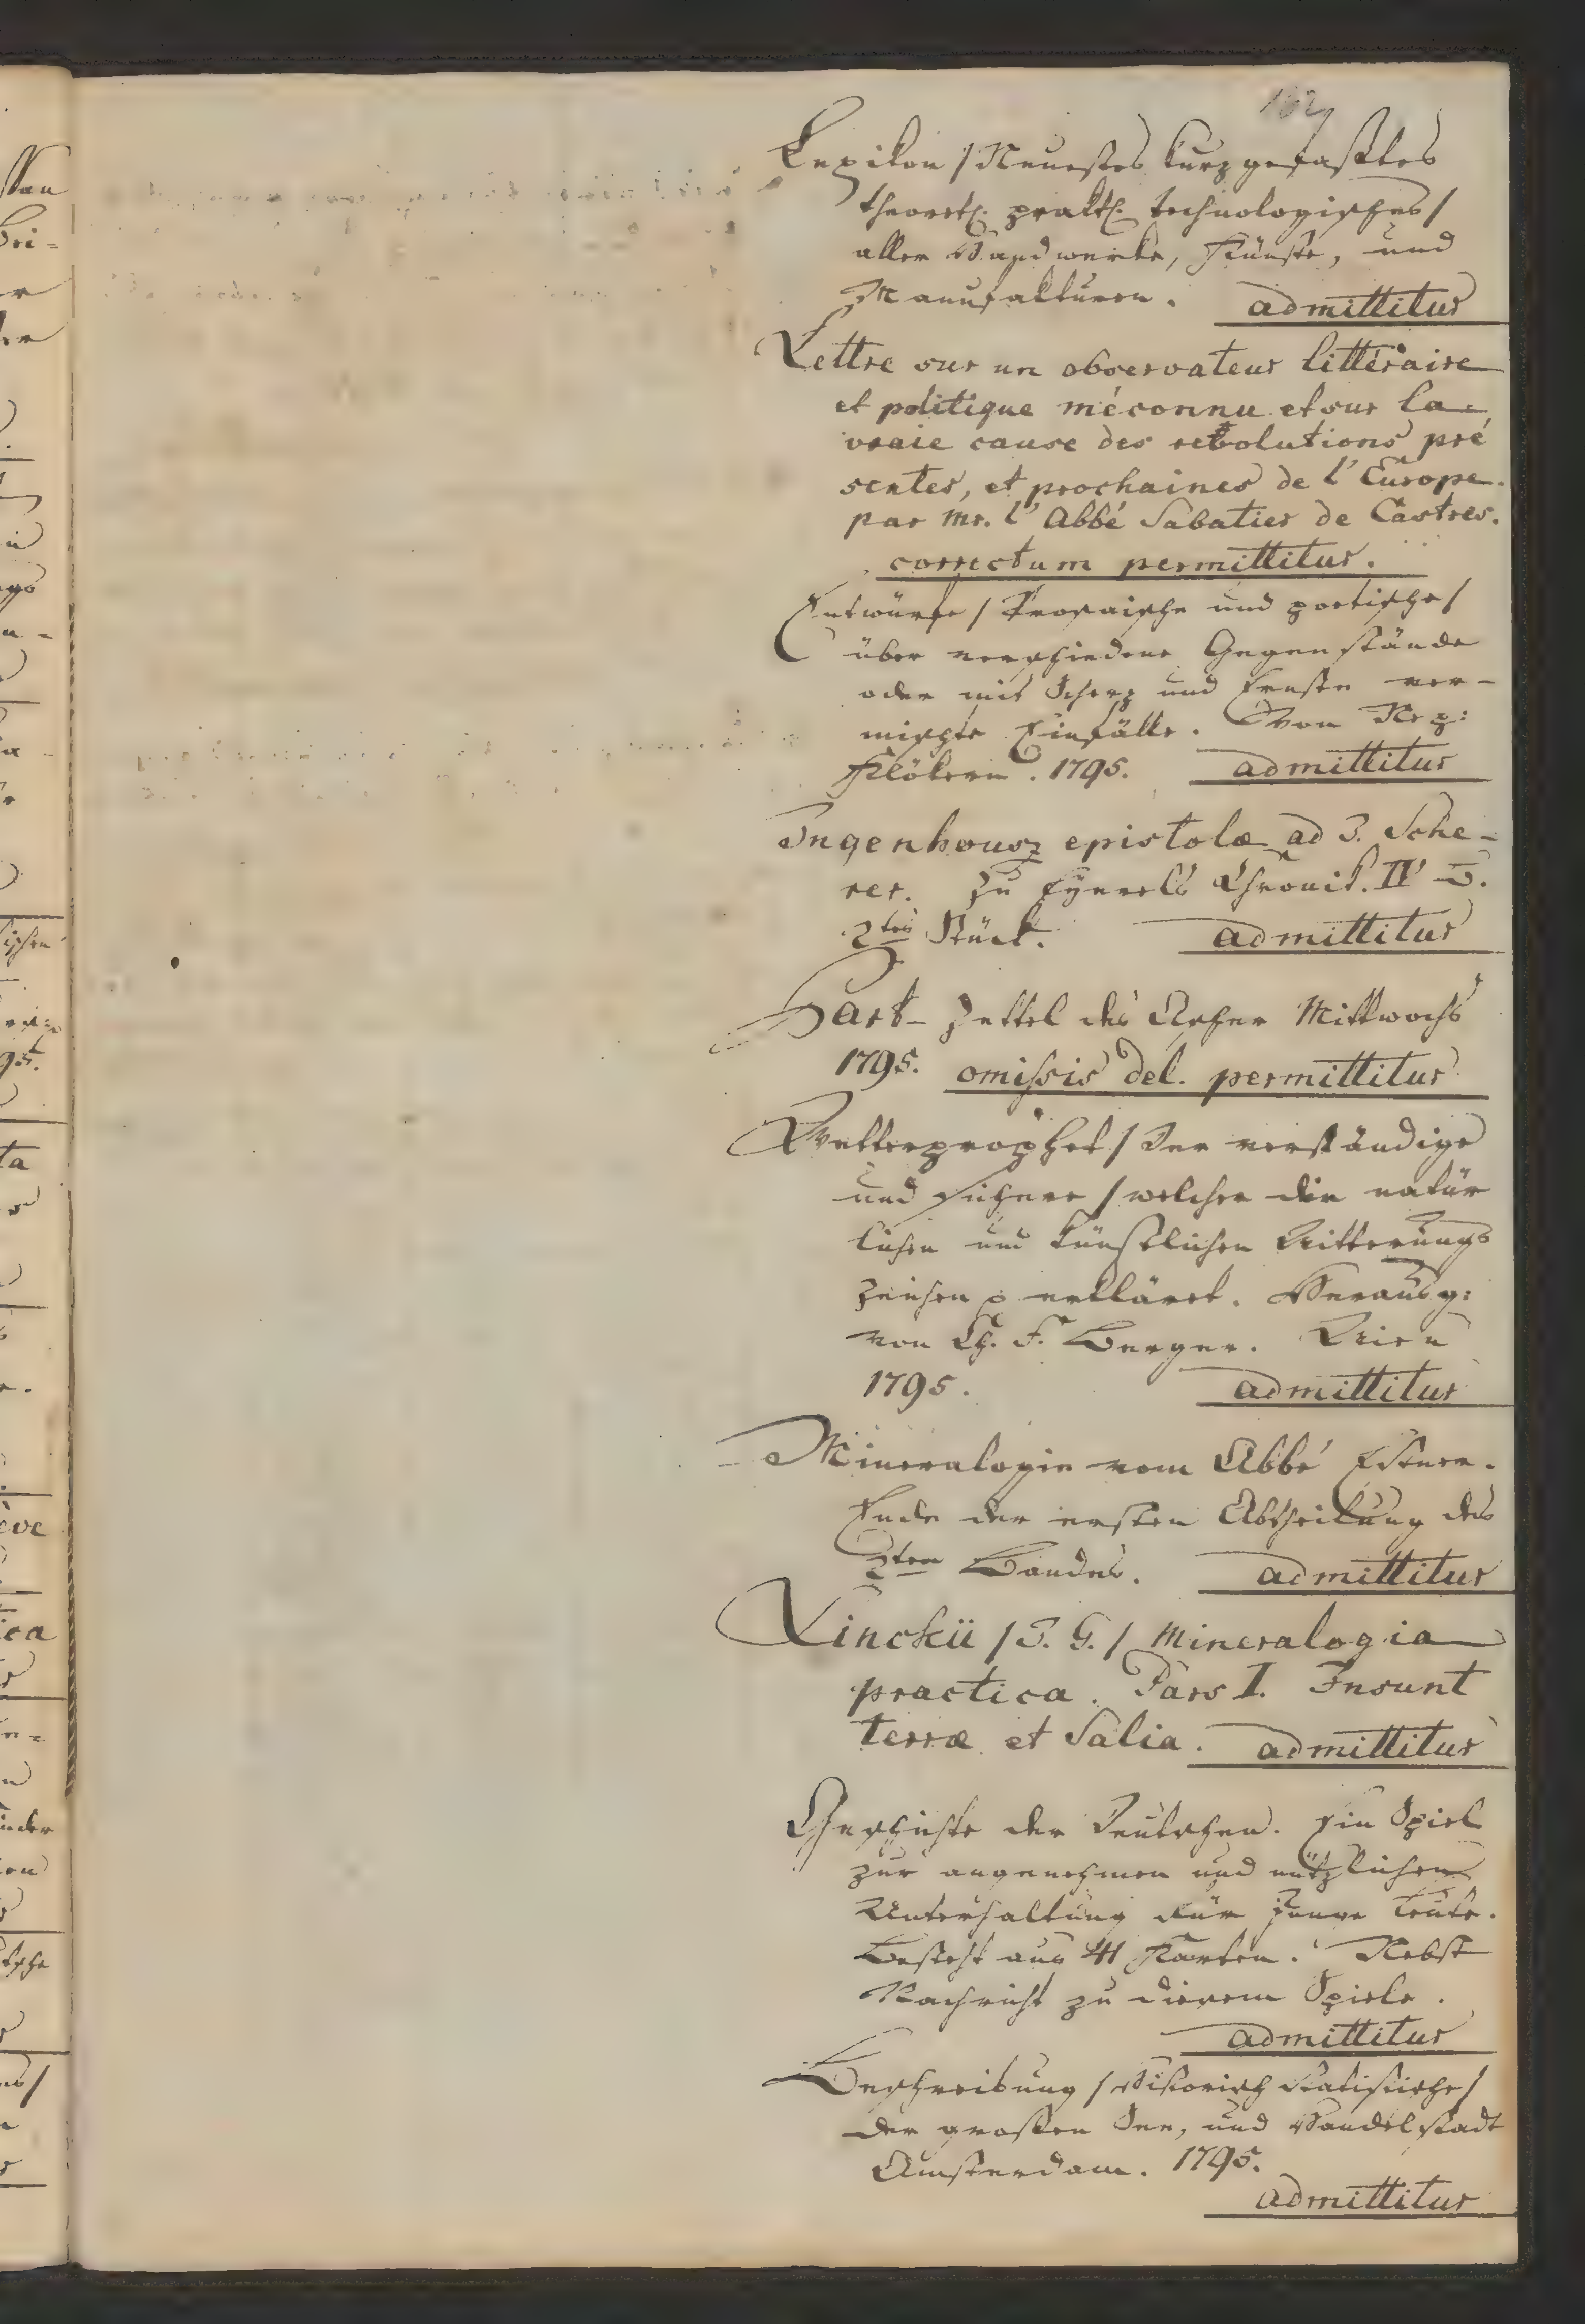 Lexikon / Neuestes kurz gefaßtes
theoret. prakt. technologisches /
aller Handwerke, Künste, und
Manufakturen. admittitur
Lettre sur un observateur littéraire
et politique méconnu et sur la
vraie cause des revolutions pré
sentes, et prochaines de l'Europe.
par Mr. l'Abbé Sabatier de Castres.
correctum permittitur.
Entwürfe / Prosaische und poetische /
über verschiedene Gegenstände
oder mit Scherz und Ernste ver-
mischte Einfälle. Von Nep:
admittitur 1795.
Ingenhousz epistola ad J. Sche-
rer. Zu Chronik. IV
2tes Stück. admittitur
Zettel des Ascher Mittwochs
1795. omissis del. permittitur
Wetterprophet / Der verständige
und sichere / welcher die natür
lichen und künstlichen Witterungs
zeichen erkläret. Herausg:
von Ch. F. Berger. Wien
1795. admittitur
Mineralogie vom Abbé Estner.
Ende der ersten Abtheilung des
2ten Bandes. admittitur
Linckii / J. G. / Mineralogia
practica. Pars I. Insunt
terræ et Salia. admittitur
Geschichte der Deutschen. Ein Spiel
zur angenehmen und nützlichen
Unterhaltung für junge Leute.
Besteht aus 41 Karten. Nebst
Nachricht zu diesem Spiele.
admittitur
Beschreibung / Historisch statistische /
der großen See, und Handelstadt
Amsterdam. 1795.
admittitur